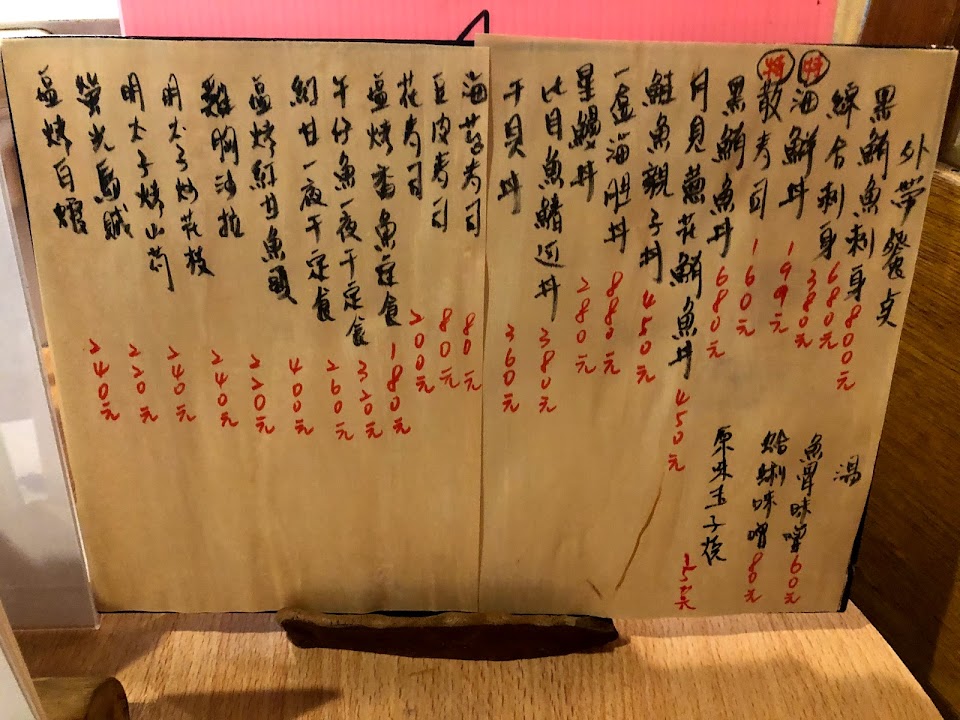 外帶餐点
黑鮪魚刺身 800元
綜合刺身 680元 380元
特 海鮮丼 199元
特 散寿司 160元
黑鮪魚丼 680元
月見蔥花鮪魚丼 450元
鮭魚親子丼 450元
一盒海胆丼 880元
星鰻丼 280元
比目魚鰭边丼 380元
干貝丼 360元
湯
魚骨味噌 60元
蛤蜊味噌 80元
原味玉子燒
海苔寿司 80元
豆皮寿司 80元
花寿司 200元
塩烤香魚定食 180元
午仔魚一夜干定食 320元
紅甘一夜干定食 260元
塩烤紅甘魚頭 400元
雞胸沙拉 220元
明太子炒花枝 240元
明太子烤山药 240元
螢光烏賊 220元
塩烤白蝦 240元